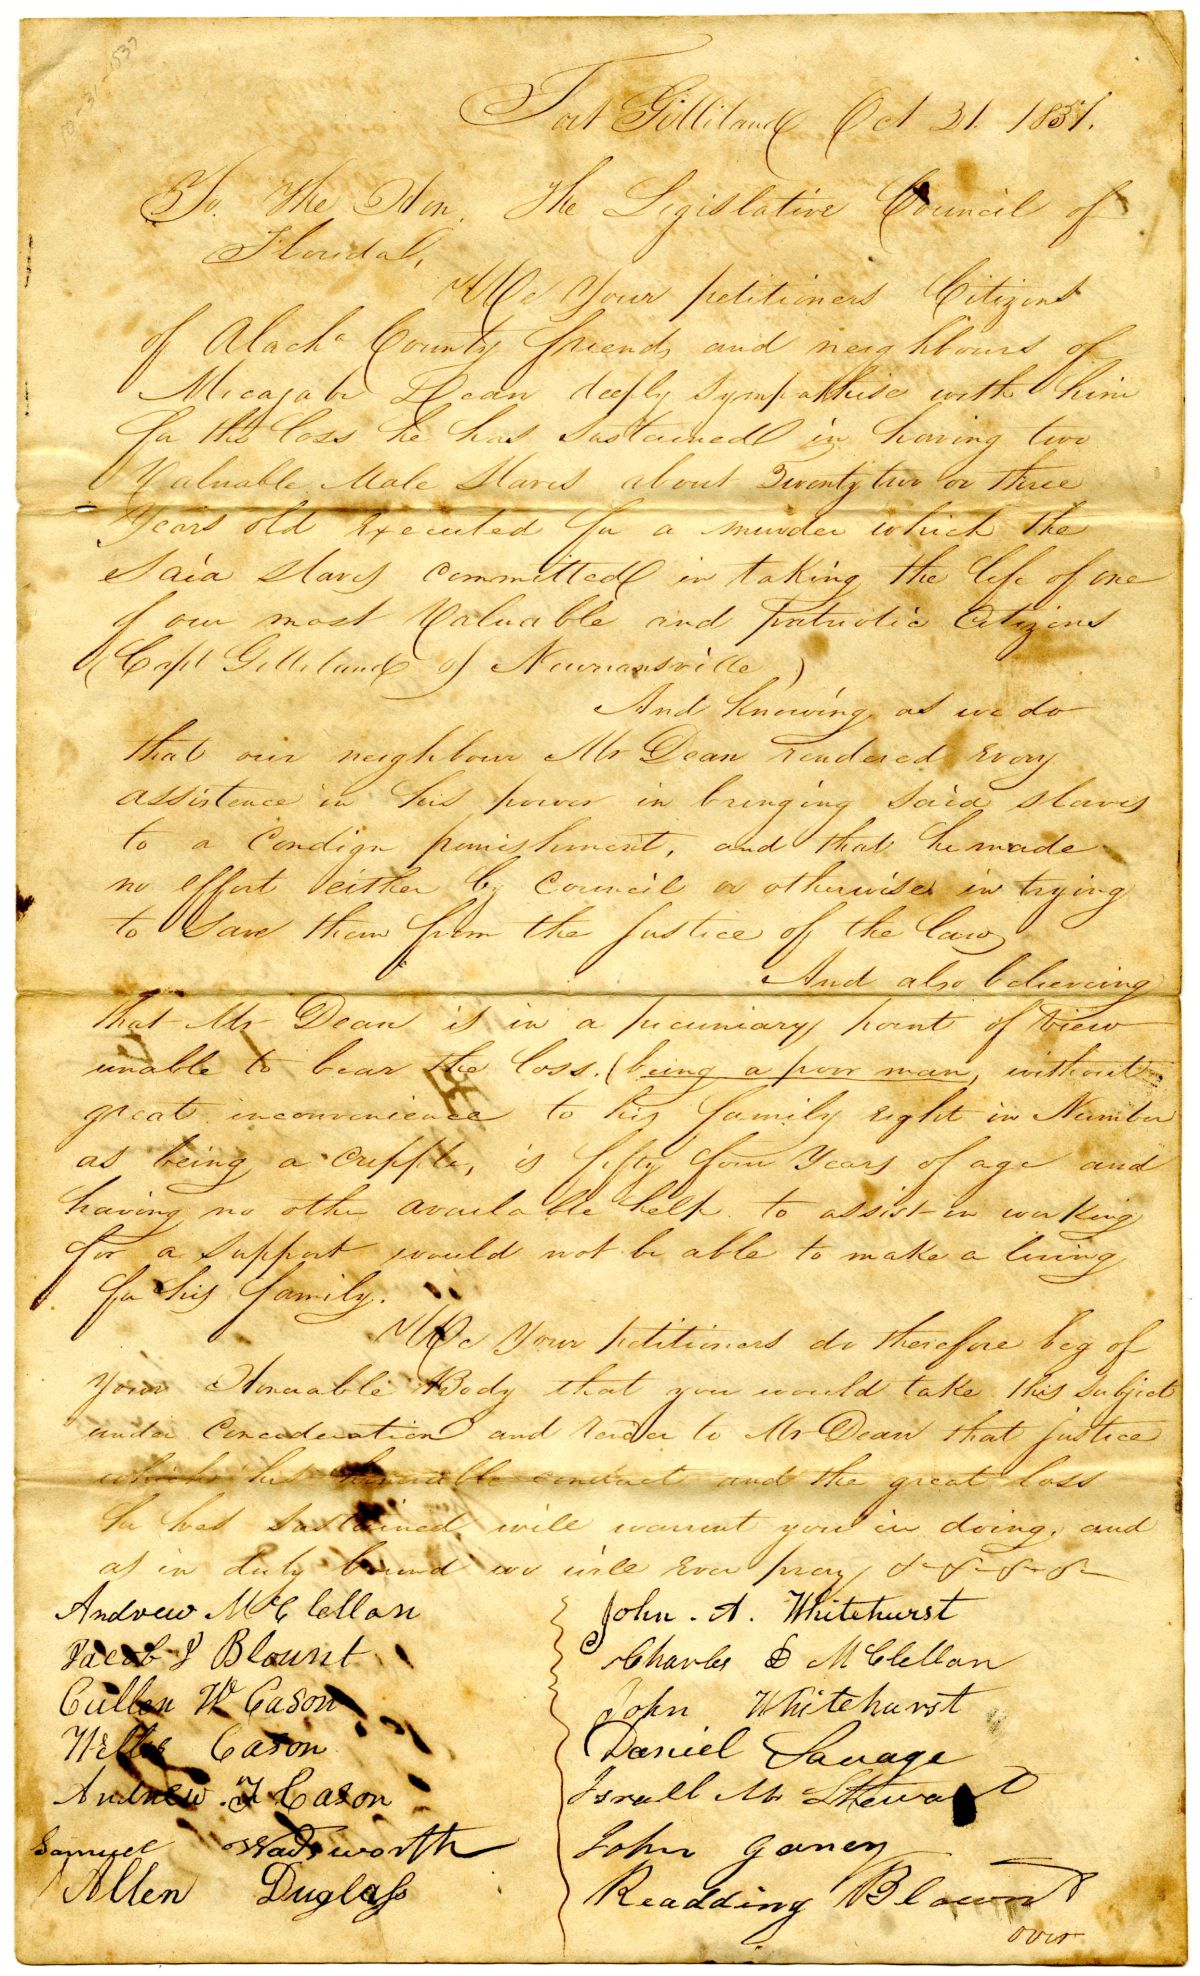 10-31-1837
Fort Gilliland Oct 31. 1837.
To. The Hon. The Legislative Council of
Florida.
We Your petitioners Citizens
of Alacha County friends and neighbours of
Micajah Dean deeply sympathise with him
for the loss he has sustained in having two
Valuable Male Slaves about Twenty two or three
Years old Executed for a murder which the
Said Slaves committed in taking the life of one
of our most Valuable and patriotic Citizens
(Capt Gilliland of Newnansville)
And knowing as we do
that our neighbour Mr Dean rendered Every
assistence in his power in bringing Said Slaves
to a Condign punishment, and that he made
no effort either by Council or otherwise in trying
to Save them from the Justice of the law,
And also believing
that Mr Dean is in a pecuniary point of View
unable to bear the loss. (being a poor man, without
great inconvenience to his family Eight in Number
as being a cripple, is fifty four Years of age and
having no other available help to assist in working
for a Support would not be able to make a living
for his family.
We Your petitioners do therefore beg of
Your Honorable Body that you would take this subject
under Concideration and Render to Mr Dean that justice
which his honorable conduct and the great loss
he has sustained will warrent you in doing, and
as in duty bound we will Ever pray &c &c &c &c
Andrew McClellan
Jacob J Blount
Cullen W Cason
Willis Cason
Andrew J Cason
Samuel Wadsworth
Allen Duglass
John. A. Whitehurst
Charles S McClellan
John Whitehurst
Daniel Savage
Israll M Stewart
John Ganey
Readding Blount
over